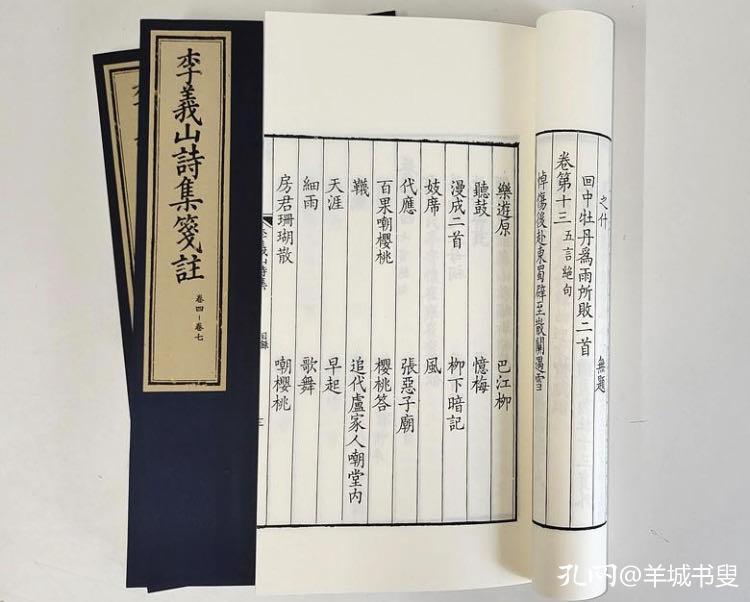 李義山詩集箋註
卷四－卷七
之什 無題
回中牡丹爲雨所敗二首
卷第十三 五言絕句
悼傷後赴東蜀辟至散關遇雪
樂遊原 巴江柳
聽鼓 憶梅
漫成二首 柳下暗記
妓席 風
代應 張惡子廟
百果嘲櫻桃 櫻桃答
韈 追代盧家人嘲堂内
天涯 早起
細雨 歌舞
房君珊瑚散 嘲櫻桃
孔网@羊城书叟